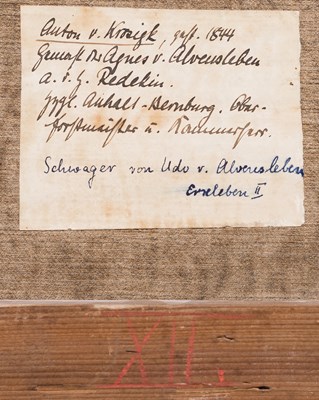 Anton v. Krosigk, gest. 1844
Gemahl der Agnes v. Alvensleben
a. d. H. Redekin.
Hzgl. Anhalt-Bernburg. Ober-
forstmeister u. Kammerherr.
Schwager von Udo v. Alvensleben
Erxleben II
XII.